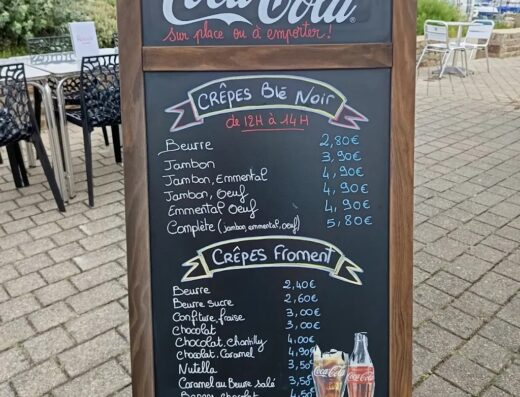 Coca-Cola
Sur place ou à emporter!
CRÊPES Blé Noir
de 12H à 14H
Beurre 2,80€
Jambon 3,90€
Jambon, Emmental 4,90€
Jambon, Oeuf 4,90€
Emmental Oeuf 4,90€
Complète (jambon, emmental, oeuf) 5,80€
CRÊPES Froment
Beurre 2,40€
Beurre sucre 2,60€
Confiture fraise 3,00€
Chocolat 3,00€
Chocolat, Chantilly 4,00€
Chocolat, Caramel 4,90€
Nutella 3,50€
Caramel au Beurre salé 3,50€
Chocolat
Coca-Cola
Coca-Cola